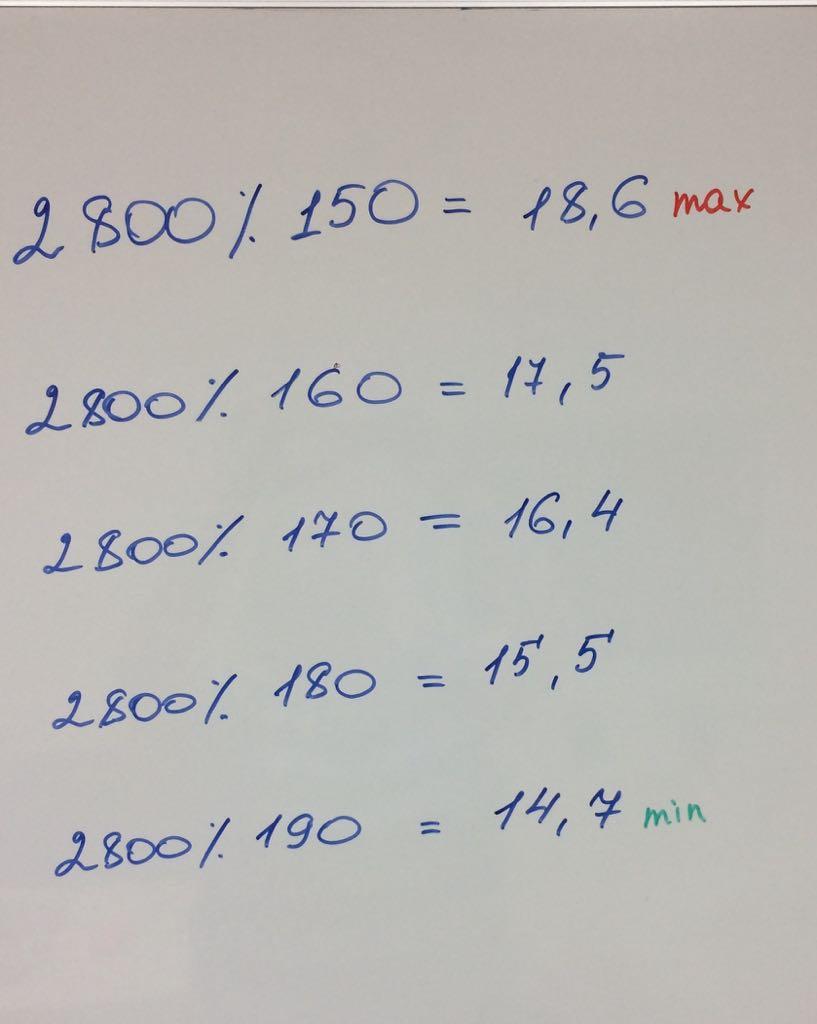 2800 ./. 150 = 18,6 max
2800 ./. 160 = 17,5
2800 ./. 170 = 16,4
2800 ./. 180 = 15,5
2800 ./. 190 = 14,7 min